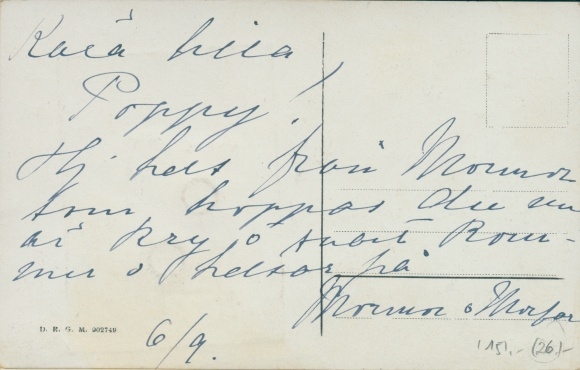 Kära lilla
Poppy!
Hj. hels från Mormor
som hoppas du nu
är kry o snart kom-
mer o helsar på
Mormor o Morfar
6/9.
D. R. G. M. 902749
151,- (26)-